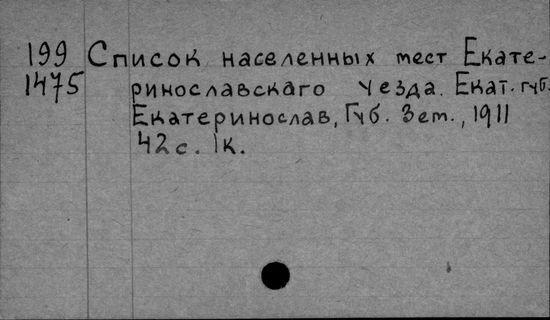 199 Список населенных мест Екате-
1475 ринославскаго уезда. Екат. губ.
Екатеринослав, Губ. Зем., 1911
42 с. 1 к.